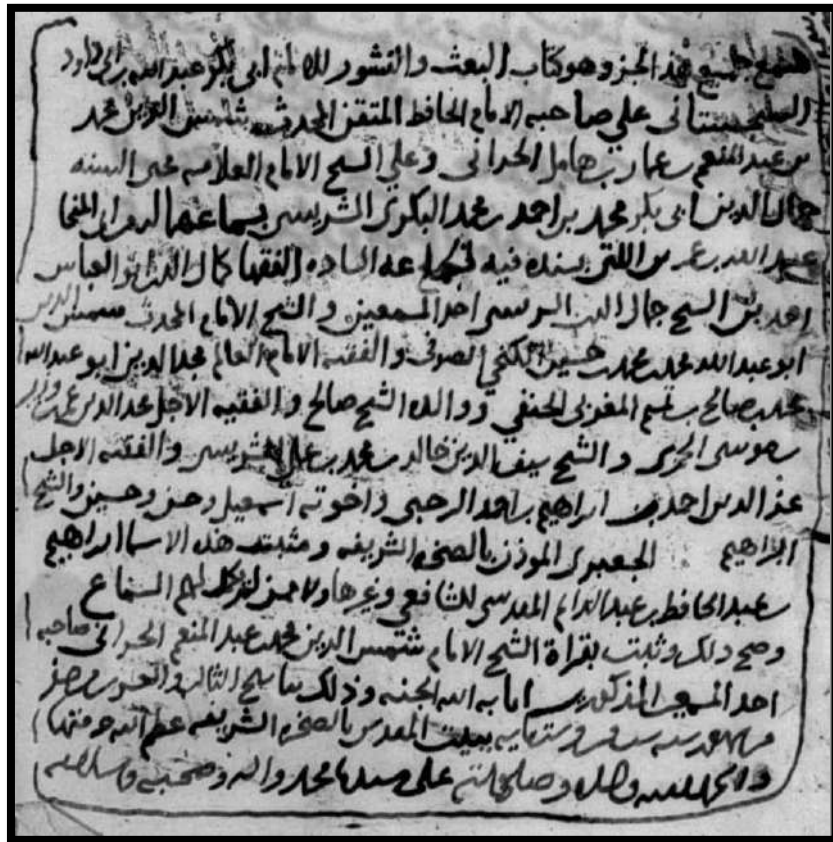 سمع جميع هذا الجزو وهو كتاب البعث والنشور للامام ابى بكر عبد الله بن ابى داود
السجستانى على صاحبه الامام الحافظ المتقن المحدث شمس الدين محمد
بن عبد المنعم بن عمار بن هامل الحرانى وعلى الشيخ الامام العلامه محى السنه
جمال الدين ابى بكر محمد بن احمد بن محمد البكرى الشريسى بسماعهما من ابى المنجا
عبد الله بن عمر بن اللتى بسنده فيه الساده الفقها كمال الدين ابو العباس
احمد بن الشيخ جمال الدين الشريسى احد المسمعين والشيخ الامام المحدث شمس الدين
ابو عبد الله محمد بن محمد بن حسين الكنجى الصوفى والفقيه الامام العالم مجد الدين ابو عبد الله
محمد بن صالح بن المغربى الحنفى ووالده الشيخ صالح والفقيه الاجل
بن موسى والشيخ سيف الدين خالد بن محمد بن على الشريسى والفقيه الاجل
عز الدين احمد بن ابراهيم بن احمد الرحبى واخوته اسمعيل وحسن وحسين والشيخ
ابراهيم الجعبرى الموذن بالصخره الشريفه ومثبت هذه الاسما ابراهيم
بن عبد الحافظ بن عبد الدايم المقدسى الشافعى وغيرها السماع
وصح ذلك وثبت بقراة الشيخ الامام شمس الدين محمد بن عبد المنعم الحرانى صاحبه
احد المسمعين المذكور اثابه الله الجنه وذلك بتاريخ الثالث والعشرين من صفر
من شهور سنه وستمايه ببيت المقدس بالصخره الشريفه عظم الله حرمتها
والحمد لله وحده وصلى الله على سيدنا محمد واله وصحبه وسلامه